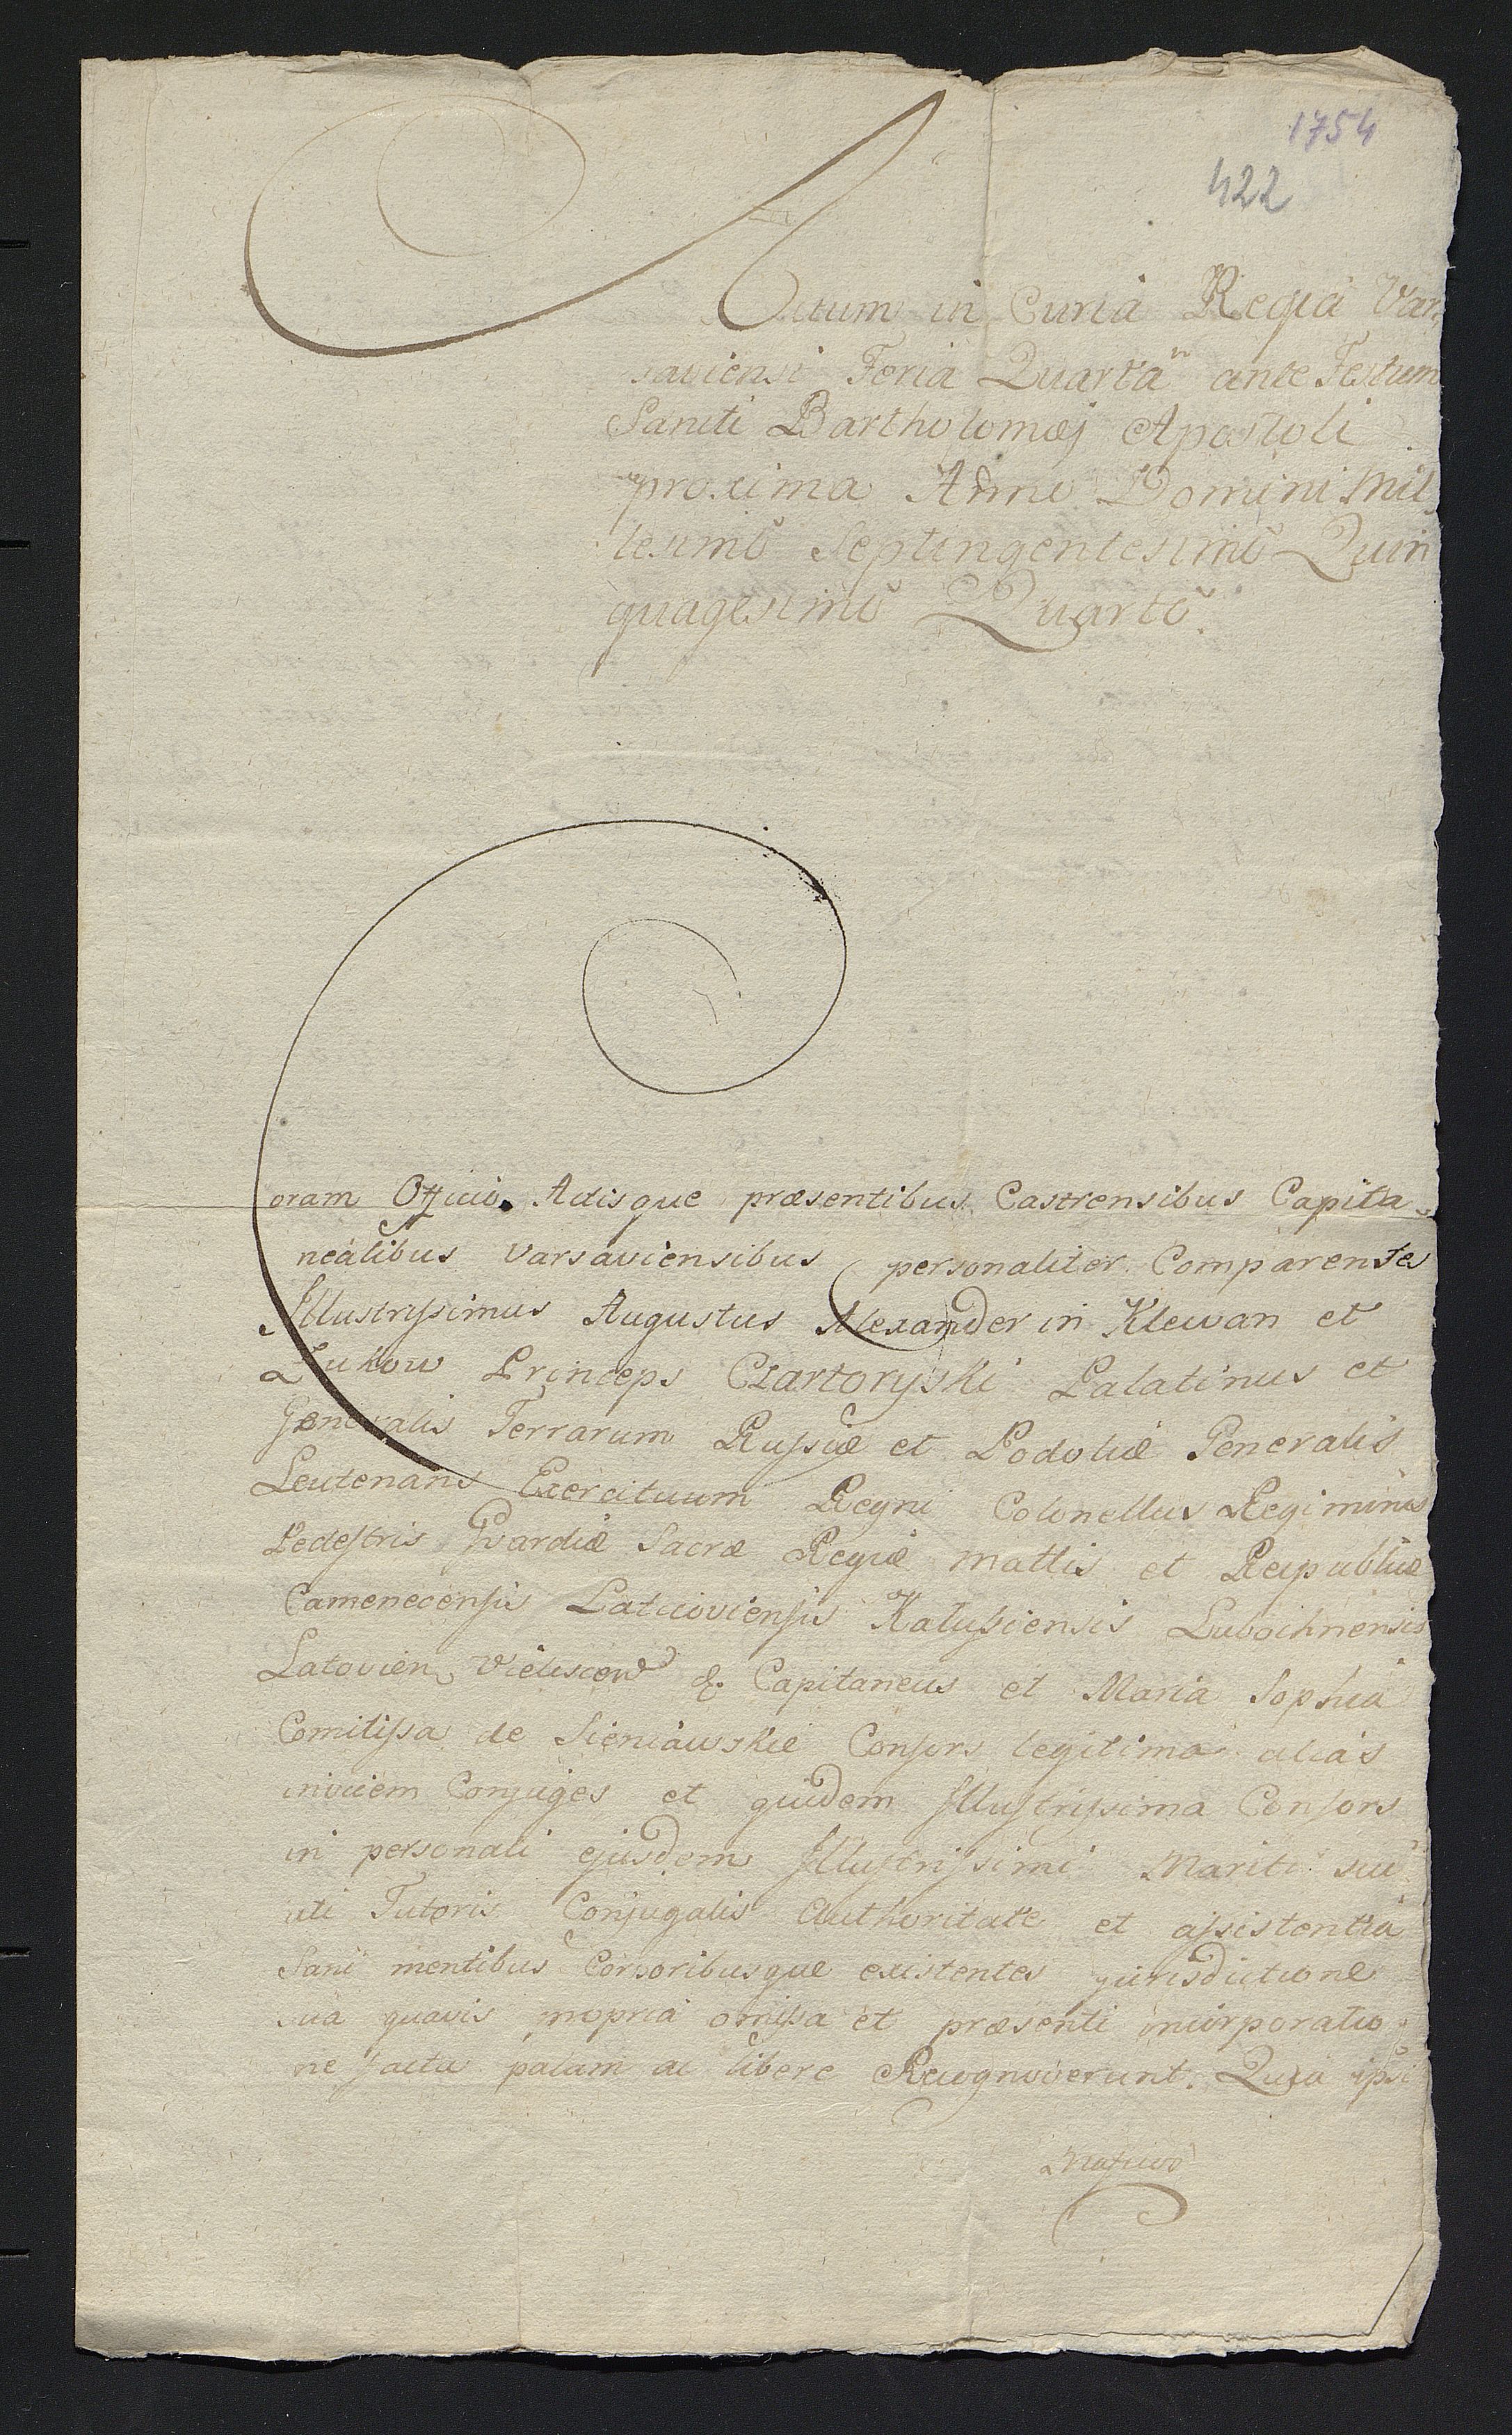 1754
422
Actum in Curia Regia Var,
saviensi Feria Quarta ante Festum
Sancti Bartholomæj Apostoli
proxima Anno Domini Mil
lesimo Septingentesimo Quin
quagesimo Quarto.
Coram Officio Actisque præsentibus Castrensibus Capita,
nealibus Varsaviensibus personaliter Comparentes
Illustrissimus Augustus Alexander in Klewan et
Zukow Princeps Czartoryski Palatinus et
Generalis Terrarum Russiæ et Podoliæ Generalis
Leutenans Exercituum Regni Colonellus Regiminis
Pedestris Gvardiæ Sacræ Regiæ Mattis et Reipublicæ
Camenecensis Laticoviensis Kalussiensis Lubochnensis
Latovien Vieliscen &. Capitaneus et Maria Sophia
Comitissa de Sieniawskie Consors legitima alias
invicem Conjuges et quidem Illustrissima Consors
in personali ejusdem Illustrissimi Mariti sui
uti Tutoris Conjugalis Authoritate et assistentia
Sani mentibus Corporibusque existentes jurisdictione
sua quavis propria omissa et præsenti incorporatio,
ne facta palam ac libere Recognoverunt. Quia ipsi